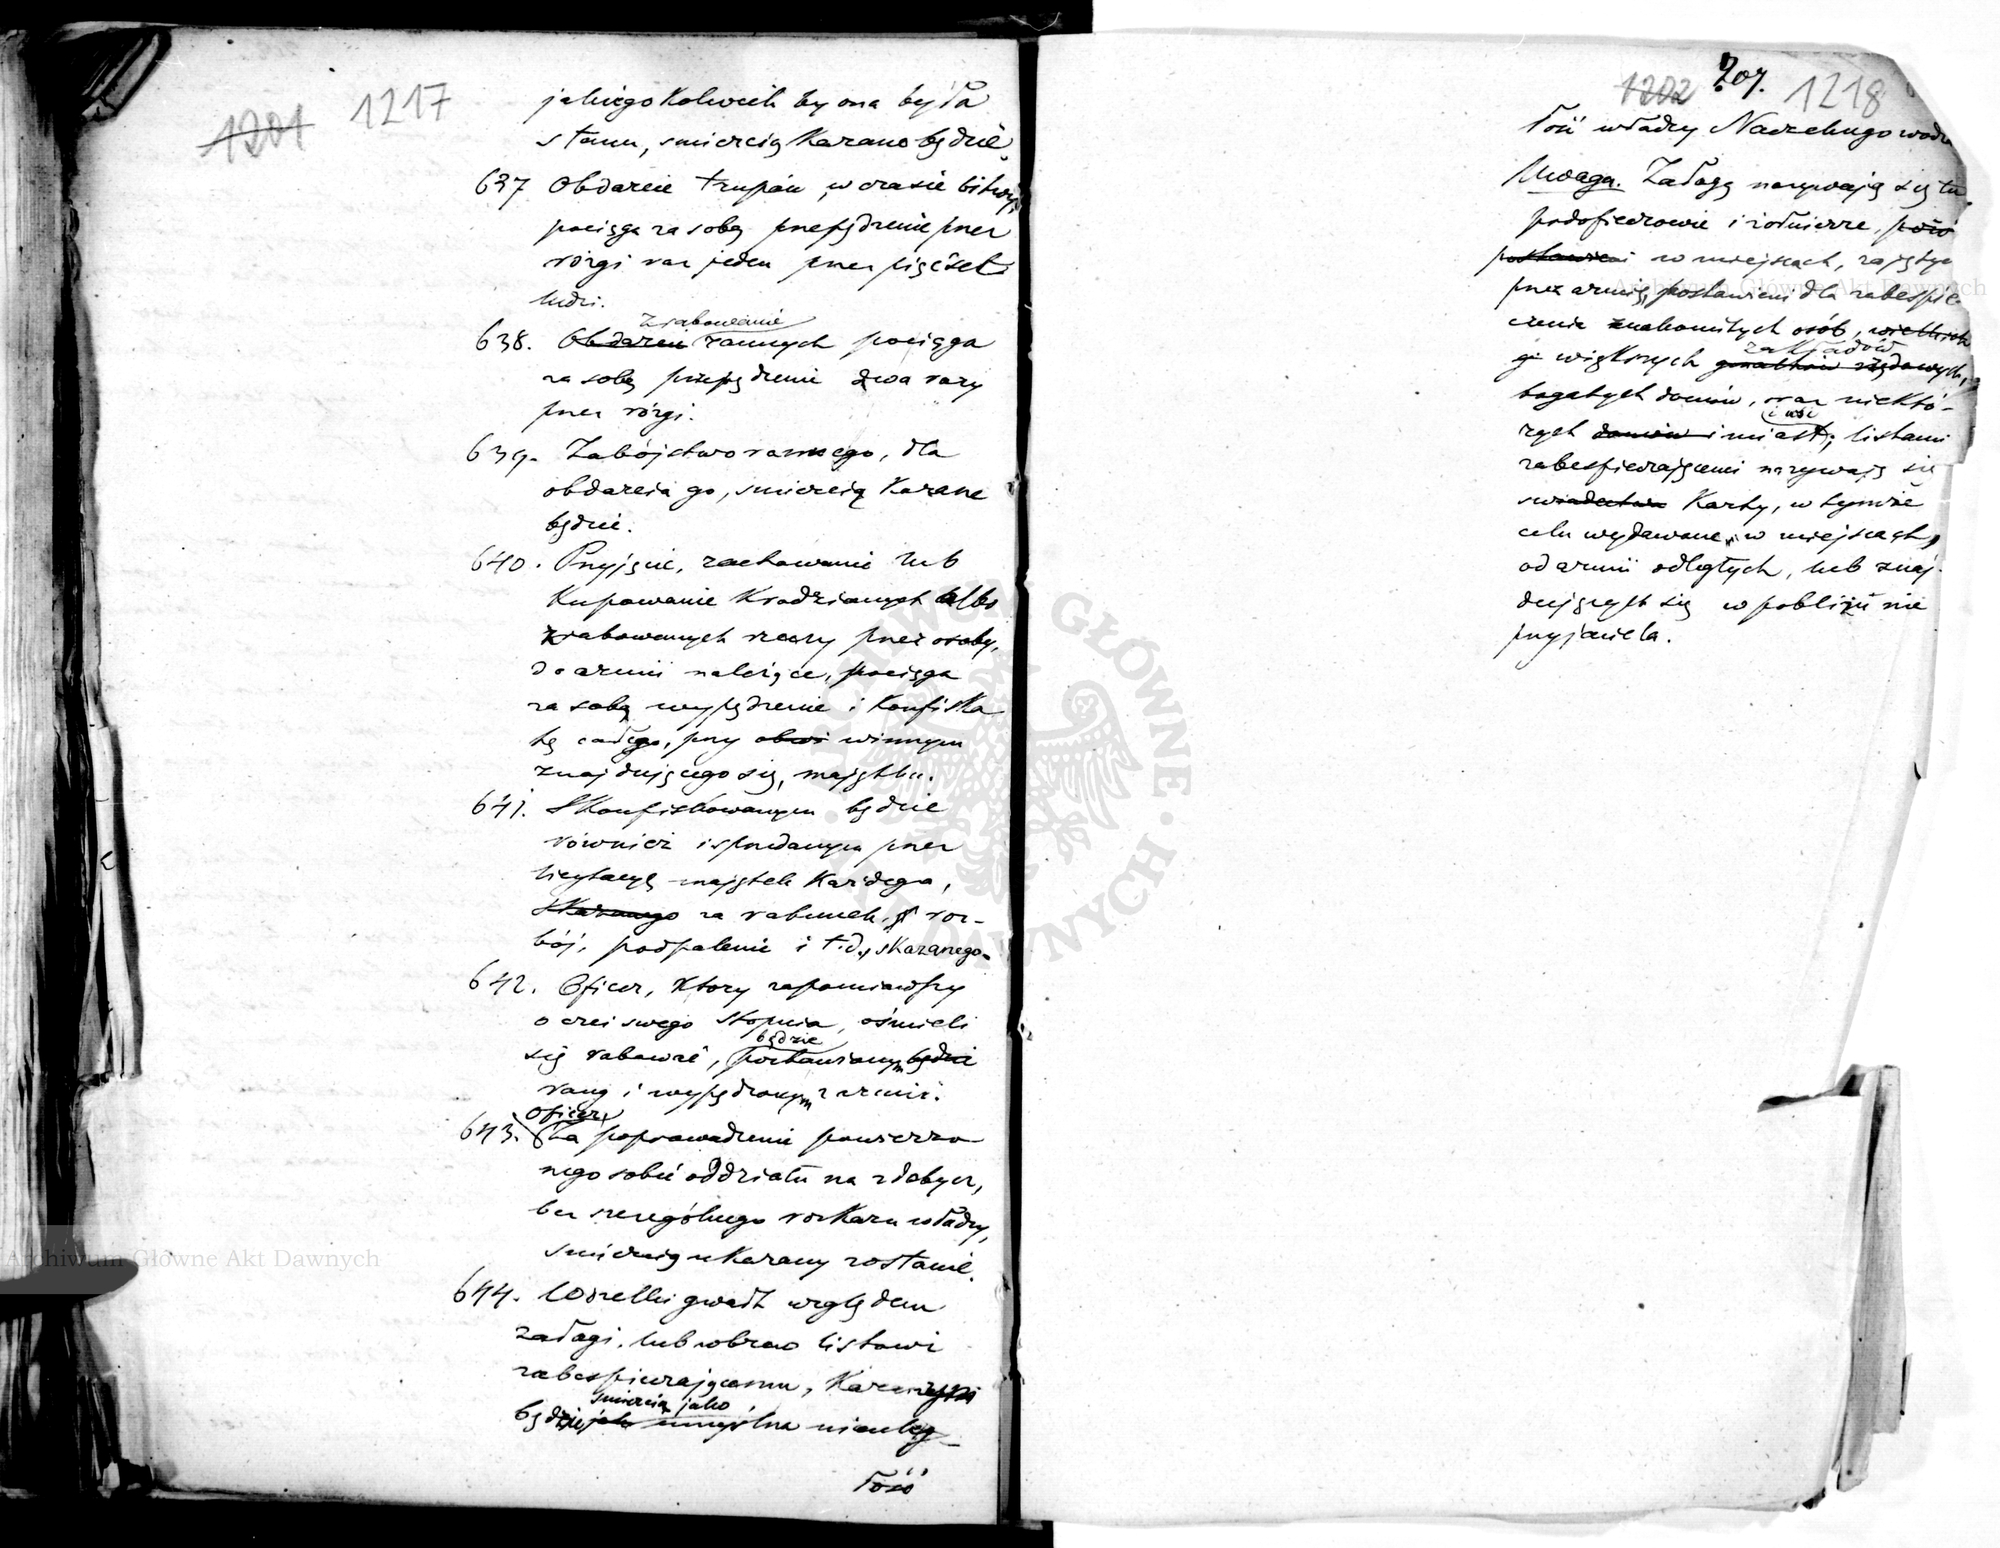 1201 1217
jakiegokolwiek by ona była
stanu, smiercią karane będzie.
637 Obdarcie trupów, w czasie bitwy,
pociąga za sobą przepędzenie przez
rózgi raz jeden przez pięćset
ludzi.
zrabowanie
638. Obdarcie rannych pociąga
za sobą przepędzenie dwa razy
przez rózgi.
639. Zabójstwo rannego, dla
obdarcia go, smiercią karane
będzie.
640. Przyjęcie, zachowanie lub
kupowanie kradzionych albo
zrabowanych rzeczy przez osoby,
do armii należące, pociąga
za sobą wypędzenie i konfiska
tę całego, przy winnym
znajdującego się, majątku.
641. Skonfiskowanym będzie
również i sprzedanym przez
licytacyę majątek każdego,
skazanego za rabunek, roz-
bój, podpalenie i t.d., skazanego.
642. Oficer, który zapomniawszy
o czci swego stopnia, ośmieli
będzie
się rabować, pozbawionym będzie
rang i wypędzonym z armii.
Oficer
643. Za poprowadzenie powierzo
nego sobie oddziału na zdobycz,
bez szczególnego rozkazu władzy,
smiercią ukarany zostanie.
644. Wszelki gwałt względem
załogi, lub wbrew listowi
zabespieczającemu,
smiercią jako
będzie jako umyślna niauleg
łość
1202 207. 1218
łość władzy Naczelnego wodza
Uwaga. Załogą nazywają się tu
podoficerowie i żołnierze,
postawieni w miejscach, zajętych
przez armię, postawieni dla zabespie-
czenia znakomitych osób,
zakładów
większych gmachów rządowych,
bogatych domów, oraz niektó-
i wsi
rych domów i miast; listami
zabespieczającemi nazywają się
swiadectwa karty, w tymże
celu wydawane w miejscach,
od armii odległych, lub znaj-
dujących się w pobliżu nie
przyjaciela.
Archiwum Główne Akt Dawnych
Archiwum Główne Akt Dawnych